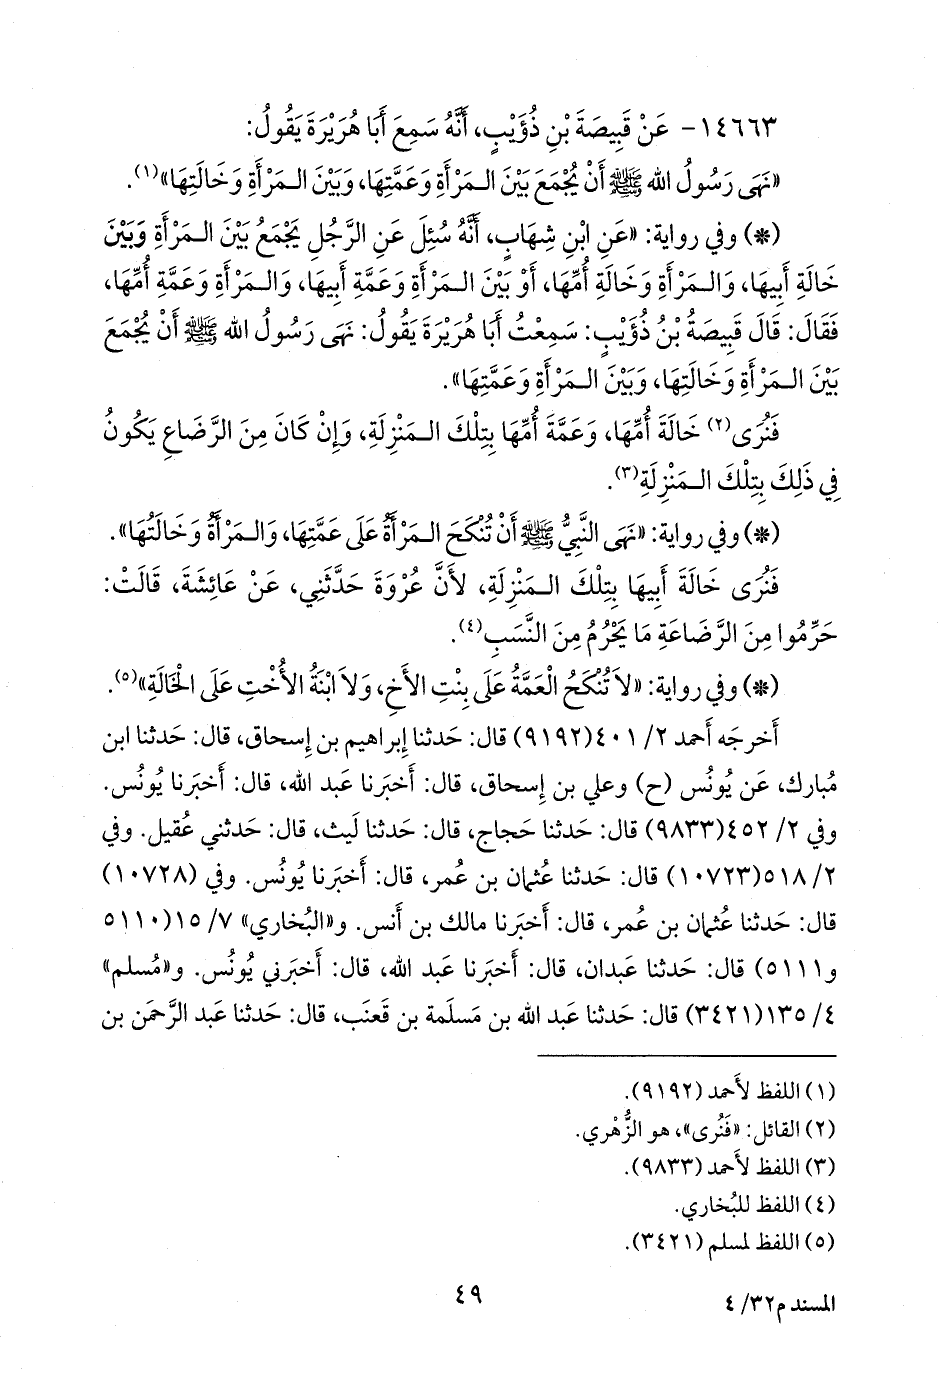 ١٤٦٦٣- عَنْ قَبِيصَةَ بْنِ ذُؤَيْبٍ، أَنَّهُ سَمِعَ أَبَا هُرَيْرَةَ يَقُولُ:
«نَهَى رَسُولُ الله ﷺ أَنْ يُجْمَعَ بَيْنَ الـمَرْأَةِ وَعَمَّتِهَا، وَبَيْنَ الـمَرْأَةِ وَخَالَتِهَا»(١).
(*) وفي رواية: «عَنِ ابْنِ شِهَابٍ، أَنَّهُ سُئِلَ عَنِ الرَّجُلِ يَجْمَعُ بَيْنَ الـمَرْأَةِ وَبَيْنَ
خَالَةِ أَبِيهَا، وَالـمَرْأَةِ وَخَالَةِ أُمِّهَا، أَوْ بَيْنَ الـمَرْأَةِ وَعَمَّةِ أَبِيهَا، وَالـمَرْأَةِ وَعَمَّةِ أُمِّهَا،
فَقَالَ: قَالَ قَبِيصَةُ بْنُ ذُؤَيْبٍ: سَمِعْتُ أَبَا هُرَيْرَةَ يَقُولُ: نَهَى رَسُولُ الله ﷺ أَنْ يُجْمَعَ
بَيْنَ الـمَرْأَةِ وَخَالَتِهَا، وَبَيْنَ الـمَرْأَةِ وَعَمَّتِهَا».
فَنُرَى(٢) خَالَةَ أُمِّهَا، وَعَمَّةَ أُمِّهَا بِتِلْكَ الـمَنْزِلَةِ، وَإِنْ كَانَ مِنَ الرَّضَاعِ يَكُونُ
فِي ذَلِكَ بِتِلْكَ الـمَنْزِلَةِ(٣).
(*) وفي رواية: «نَهَى النَّبِيُّ ﷺ أَنْ تُنْكَحَ الـمَرْأَةُ عَلَى عَمَّتِهَا، وَالـمَرْأَةُ وَخَالَتُهَا».
فَنُرَى خَالَةَ أَبِيهَا بِتِلْكَ الـمَنْزِلَةِ، لأَنَّ عُرْوَةَ حَدَّثَنِي، عَنْ عَائِشَةَ، قَالَتْ:
حَرِّمُوا مِنَ الرَّضَاعَةِ مَا يَحْرُمُ مِنَ النَّسَبِ(٤).
(*) وفي رواية: «لاَ تُنْكَحُ الْعَمَّةُ عَلَى بِنْتِ الأَخِ، وَلاَ ابْنَةُ الأُخْتِ عَلَى الْخَالَةِ»(٥).
أَخرجَه أَحمد ٢/ ٤٠١(٩١٩٢) قال: حَدثنا إِبراهيم بن إِسحاق، قال: حَدثنا ابن
مُبارك، عَن يُونُس (ح) وعلي بن إِسحاق، قال: أَخبَرنا عَبد الله، قال: أَخبَرنا يُونُس.
وفي ٢/ ٤٥٢(٩٨٣٣) قال: حَدثنا حَجاج، قال: حَدثنا لَيث، قال: حَدثني عُقيل. وفي
٢/ ٥١٨(١٠٧٢٣) قال: حَدثنا عُثمان بن عُمر، قال: أَخبَرنا يُونُس. وفي (١٠٧٢٨)
قال: حَدثنا عُثمان بن عُمر، قال: أَخبَرنا مالك بن أَنس. و«البُخاري» ٧/ ١٥(٥١١٠
و٥١١١) قال: حَدثنا عَبدان، قال: أَخبَرنا عَبد الله، قال: أَخبَرني يُونُس. و«مُسلم»
٤/ ١٣٥(٣٤٢١) قال: حَدثنا عَبد الله بن مَسلَمة بن قَعنَب، قال: حَدثنا عَبد الرَّحمَن بن
(١) اللفظ لأَحمد (٩١٩٢).
(٢) القائل: «فَنُرى»، هو الزُّهْري.
(٣) اللفظ لأَحمد (٩٨٣٣).
(٤) اللفظ للبُخاري.
(٥) اللفظ لمسلم (٣٤٢١).
٤٩
المسند م٣٢/ ٤